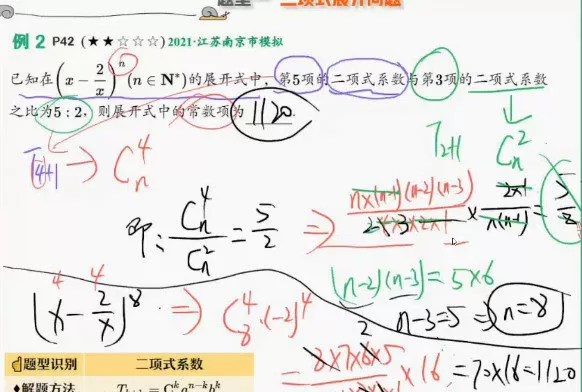 题型一 二项式展开问题
例 2 P42 (★★☆☆☆) 2021·江苏南京市模拟
已知在(x - 2/x)^n (n∈N*)的展开式中，第5项的二项式系数与第3项的二项式系数
之比为5：2，则展开式中的常数项为 1120
T_{4+1} → C_n^4
T_{2+1} C_n^2
即: C_n^4/C_n^2 = 5/2 ⇒ n×(n-1)(n-2)(n-3)/4×3×2×1 × 2×1/n(n-1) = 5/2
(n-2)(n-3) = 5×6
n-3=5 ⇒ n=8
(x - 2/x)^8 ⇒ C_8^4·(-2)^4
4 4
= 8×7×6×5 ×16 = 70×16=1120
题型识别 二项式系数
◆解题方法 T_{k+1} = C_n^k a^{n-k} b^k